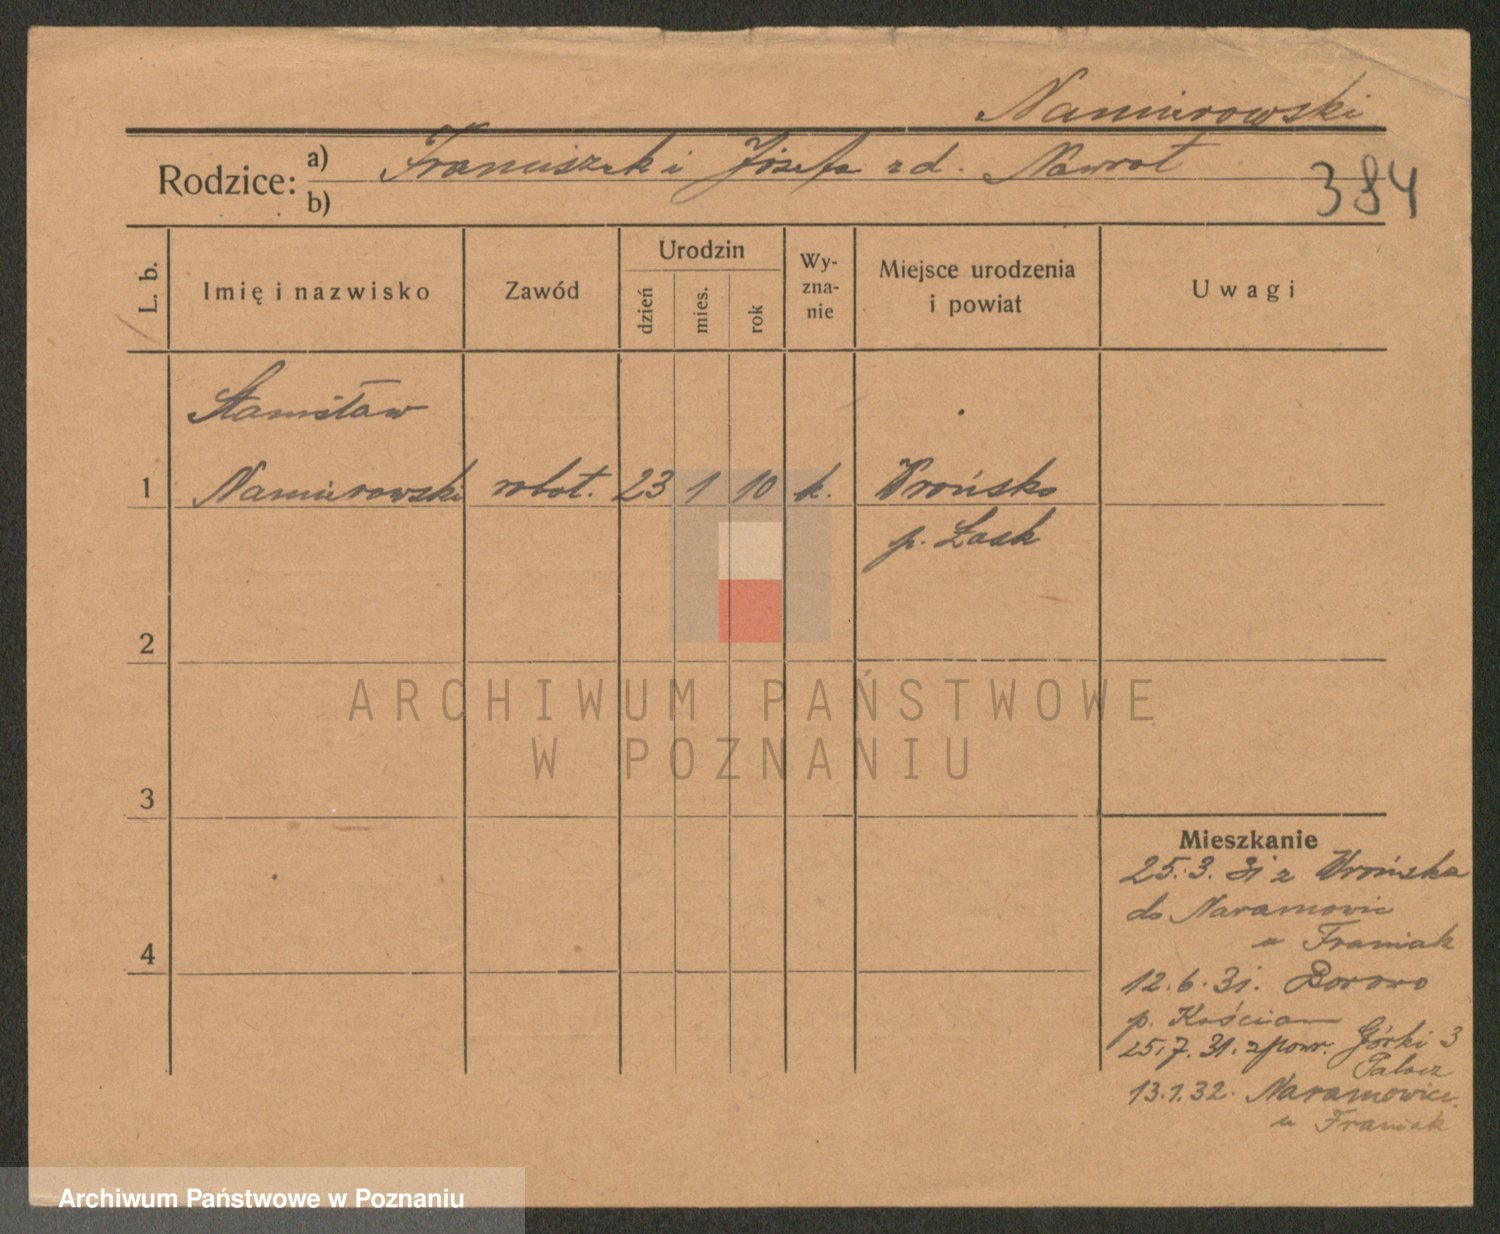 Namierowski
Rodzice: a) Franciszek i Józefa zd. Nawrot
b)
384
L. b.
Imię i nazwisko
Zawód
Urodzin
dzień
mies.
rok
Wy-
zna-
nie
Miejsce urodzenia
i powiat
Uwagi
Stanisław
1 Namierowski robot. 23 1 10 k. Wrońsko
p. Łask
2
3
4
ARCHIWUM PAŃSTWOWE
W POZNANIU
Mieszkanie
25.3.31 z Wrońska
do Naramowic
u Franiak
12.6.31. Borowo
p. Kościan
25.7.31. z powr. Górki 3
13.1.32. Naramowice
u Franiak
Archiwum Państwowe w Poznaniu